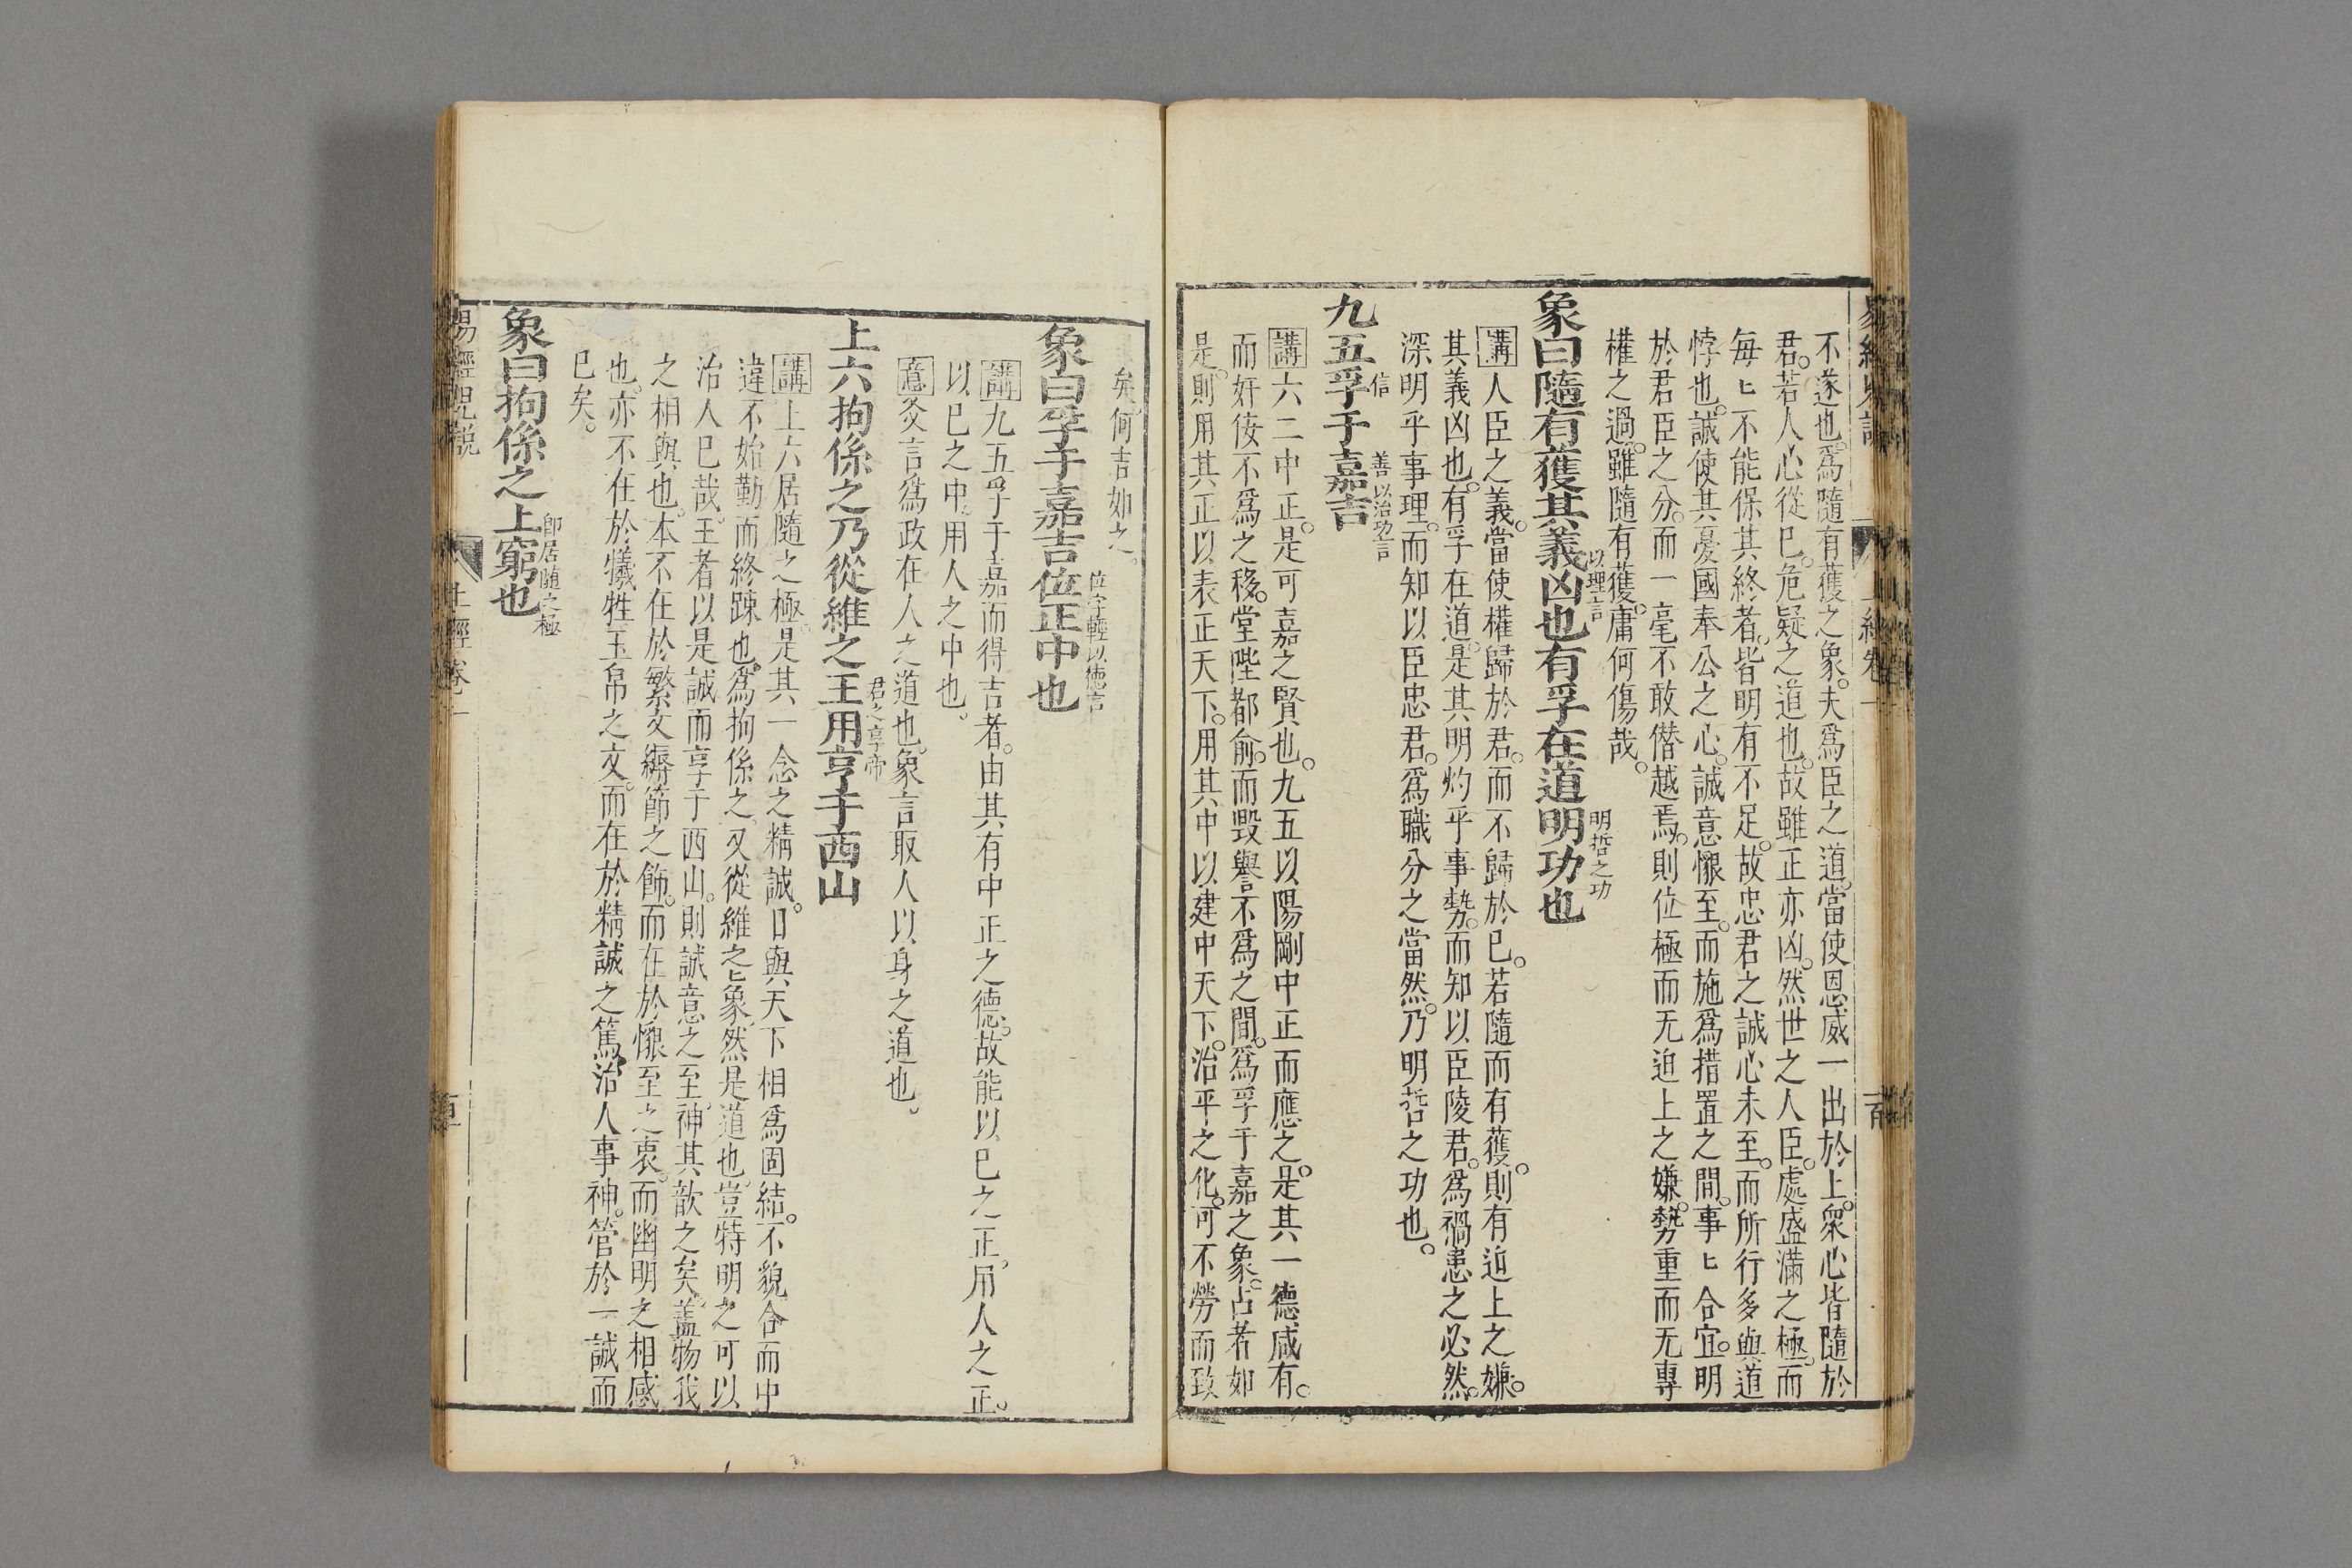 不遂也爲隨有獲之象夫爲臣之道當使恩威一出於上衆心皆隨於
君若人心從已危疑之道也故雖正亦凶然世之人臣處盛滿之極而
每〻不能保其終者皆明有不足故忠君之誠心未至而所行多與道
悖也誠使其憂國奉公之心誠意懇至而施爲措置之間事〻合宜明
於君臣之分而一毫不敢僭越焉則位極而无迫上之嫌勢重而无專
權之過雖隨有獲庸何傷哉
以理言 明哲之功
象曰隨有獲其義凶也有孚在道明功也
講人臣之義當使權歸於君而不歸於已若隨而有獲則有迫上之嫌
其義凶也有孚在道是其明灼乎事勢而知以臣陵君爲禍患之必然
深明乎事理而知以臣忠君爲職分之當然乃明哲之功也
信 善以治功言
九五孚于嘉吉
講六二中正是可嘉之賢也九五以陽剛中正而應之是其一德咸有
而奸侫不爲之移堂陛都俞而毀譽不爲之間爲孚于嘉之象占若如
是則用其正以表正天下用其中以建中天下治平之化可不勞而致
矣何吉如之
位字輕以德言
象曰孚于嘉吉位正中也
講九五孚于嘉而得吉者由其有中正之德故能以已之正用人之正
以已之中用人之中也
意爻言爲政在人之道也象言取人以身之道也
君之亨帝
上六拘係之乃從維之王用亨于西山
講上六居隨之極是其一念之精誠日與天下相爲固結不貌合而中
違不始勤而終踈也爲拘係之又從維之〻象然是道也豈特明之可以
治人已哉王者以是誠而亨于西山則誠意之至神其歆之矣蓋物我
之相與也本不在於繁文縟節之飾而在於懇至之衷而幽明之相感
也亦不在於犧牲玉帛之文而在於精誠之篤治人事神管於一誠而
已矣
即居隨之極
象曰拘係之上窮也
易經兒說 上經卷一